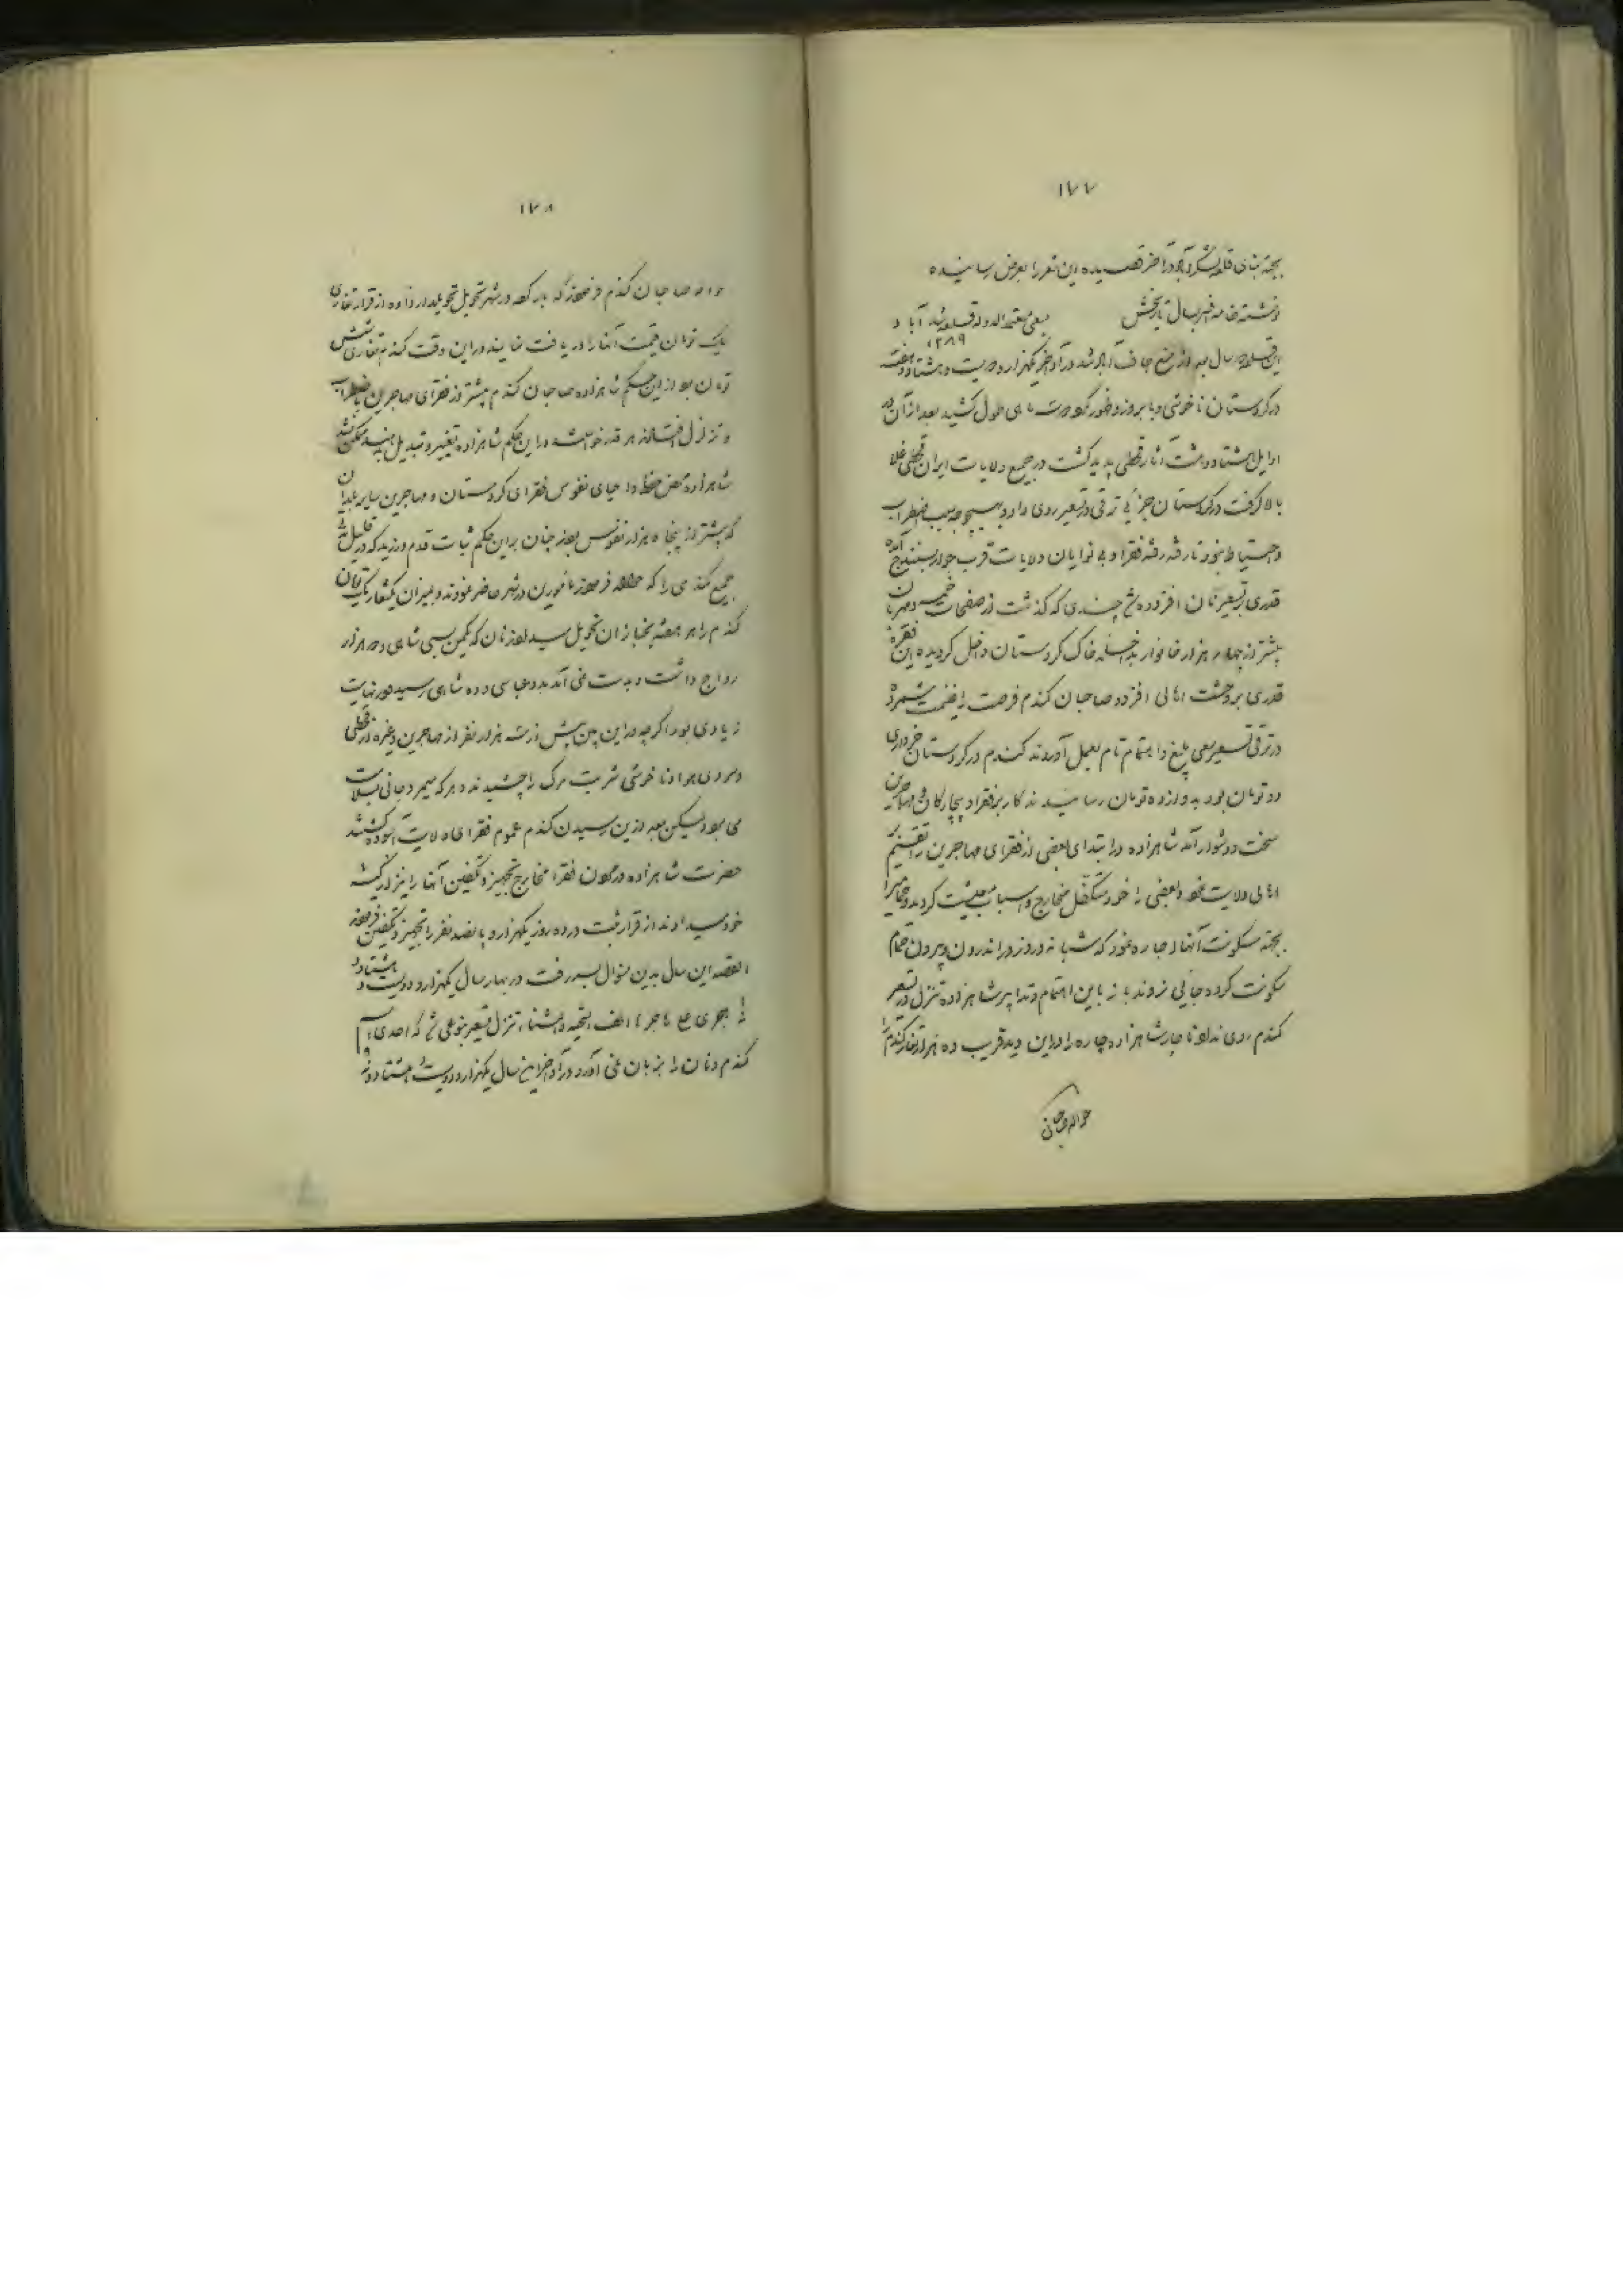 ۱۷۷
بجهة بنای قلعه در آخر قصیده این شعر را بعرض رسانیده
نوشته خامه سال تاریخش بسعی معتمدالدوله قلعه شد آباد
۱۲۸۹
این قلعه سال بعد از فتح جاف آباد شد در آواخر یکهزار و دویست و هشتاد و هفت
در کردستان ناخوشی وبا بروز و ظهور کرده مدت طول کشید بعد از آن در
اوایل هشتاد و هشت آثار قحطی پدید گشت در جمیع ولایات ایران قحطی غلا
بالا گرفت در کردستان جزئی ترقی در تسعیر روی داد و بهیچوجه سبب اضطراب
و احتیاط نبود تا رفته رفته فقرا و بی نوایان ولایات قرب جوار بسنندج آمده
قدری بر تسعیر نان افزوده چندی که گذشت از صفحات خمسه و
بیشتر از چهار هزار خانوار خاک کردستان داخل گردیده این فقره
قدری بر وحشت اهالی افزود صاحبان گندم فرصت را غنیمت شمرده
در ترقی تسعیر سعی بلیغ و اهتمام تام بعمل آوردند گندم در کردستان خرواری
دو تومان بود به دوازده تومان رسانیدند کار بر فقرا و بیچارگان و مهاجرین
سخت و دشوار آمد شاهزاده در ابتدای بعضی از فقرای مهاجرین را تقسیم
اهالی ولایت نمود و بعضی را خود متکفل مخارج و اسباب معیشت گردید و حمامیرا
بجهة سکونت آنها اجاره نمود که شبانه روز در اندرون و بیرون حمام
سکونت کرده جائی نروند باز با این اهتمام و تدابیر شاهزاده تنزل در تسعیر
گندم روی نداد ناچار شاهزاده چاره را در این دید قریب ده هزار تغار گندم را
۱۷۸
صاحبان گندم فرمودند که بار کرده در شهر تحویل تحویلدار داده از قرار تغاری
یک تومان قیمت آنها را دریافت نمایند در این وقت گندم تغاری شش
تومان بود از این حکم شاهزاده صاحبان گندم بیشتر از فقرای مهاجرین باضطراب
و تزلزل افتادند هر قدر خواستند در این حکم شاهزاده تغییر و تبدیل بدهند ممکن نشد
شاهزاده محض حفظ و احیای نفوس فقرای کردستان و مهاجرین سایر بلدان
که بیشتر از پنجاه هزار نفوس بودند چنان بر این حکم ثبات قدم ورزید که در قلیل مدت
جمیع گندمی را که فرموده مأمورین در شهر حاضر نمودند
گندم را هر هفته بخبازان تحویل رسید نان که یکمن بسی شاهی و دو هزار
رواج داشت و بدست نمی آمد به دو عباسی و ده شاهی رسید در نهایت
زیادی بود اگرچه در این بین بیش از سه هزار نفر از مهاجرین و غیره از قحطی
و سردی هوا و ناخوشی شربت مرگ را چشیدند
می بود لیکن بعد از این رسیدن گندم عموم فقرای ولایت آسوده گشتند
حضرت شاهزاده فقرا مخارج تجهیز و تکفین آنها را نیز از کیسه
خود میدادند از قرار ثبت در ده روز یکهزار و پانصد نفر را تجهیز و تکفین فرمودند
القصه این سال بدین منوال بسر رفت در بهار سال یکهزار و دویست و هشتاد و
نه هجری علی هاجرها الف التحیه و الثناء تنزل تسعیر بنوعی شد که احدی اسم
گندم و نان را بزبان نمی آورد در آواخر این سال یکهزار و دویست و هشتاد و نه